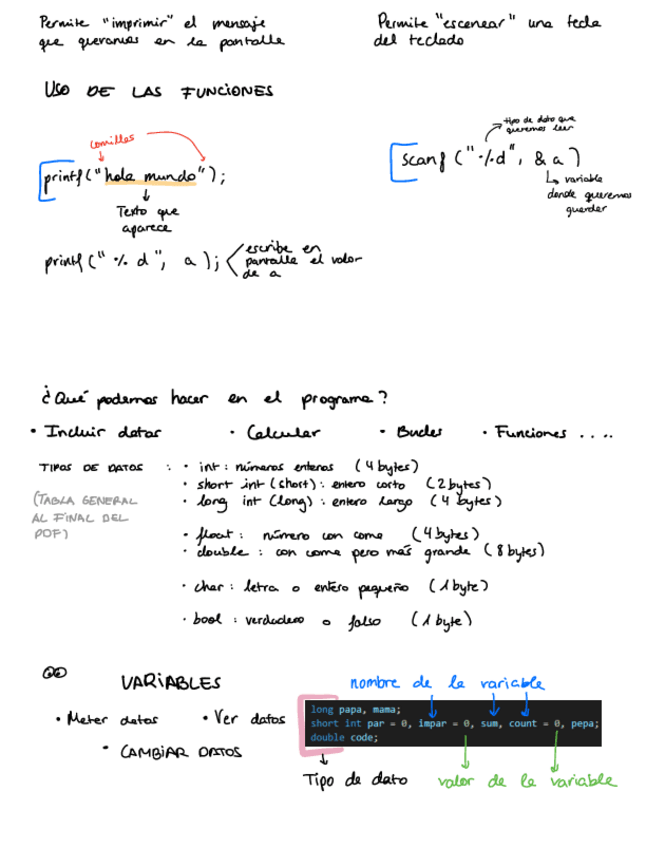 Permite "imprimir" el mensaje
que queramos en la pantalla
Permite "escenear" una tecla
del teclado
USO DE LAS FUNCIONES
comillas
printf("hola mundo");
Texto que
aparece
printf("%d", a);
escribe en
pantalla el valor
de a
tipo de dato que
queremos leer
scanf ("%d", &a)
variable
donde queremos
guardar
¿Qué podemos hacer en el programa?
• Incluir datos • Calcular • Bucles • Funciones ....
TIPOS DE DATOS :
(TABLA GENERAL
AL FINAL DEL
PDF)
• int: números enteros (4 bytes)
• short int (short): entero corto (2 bytes)
• long int (long): entero largo (4 bytes)
• float: número con coma (4 bytes)
• double: con coma pero más grande (8 bytes)
• char: letra o entero pequeño (1 byte)
• bool: verdadero o falso (1 byte)
VARIABLES
• Meter datos • Ver datos
• CAMBIAR DATOS
nombre de la variable
long papa, mama;
short int par = 0, impar = 0, sum, count = 0, pepa;
double code;
Tipo de dato
valor de la variable